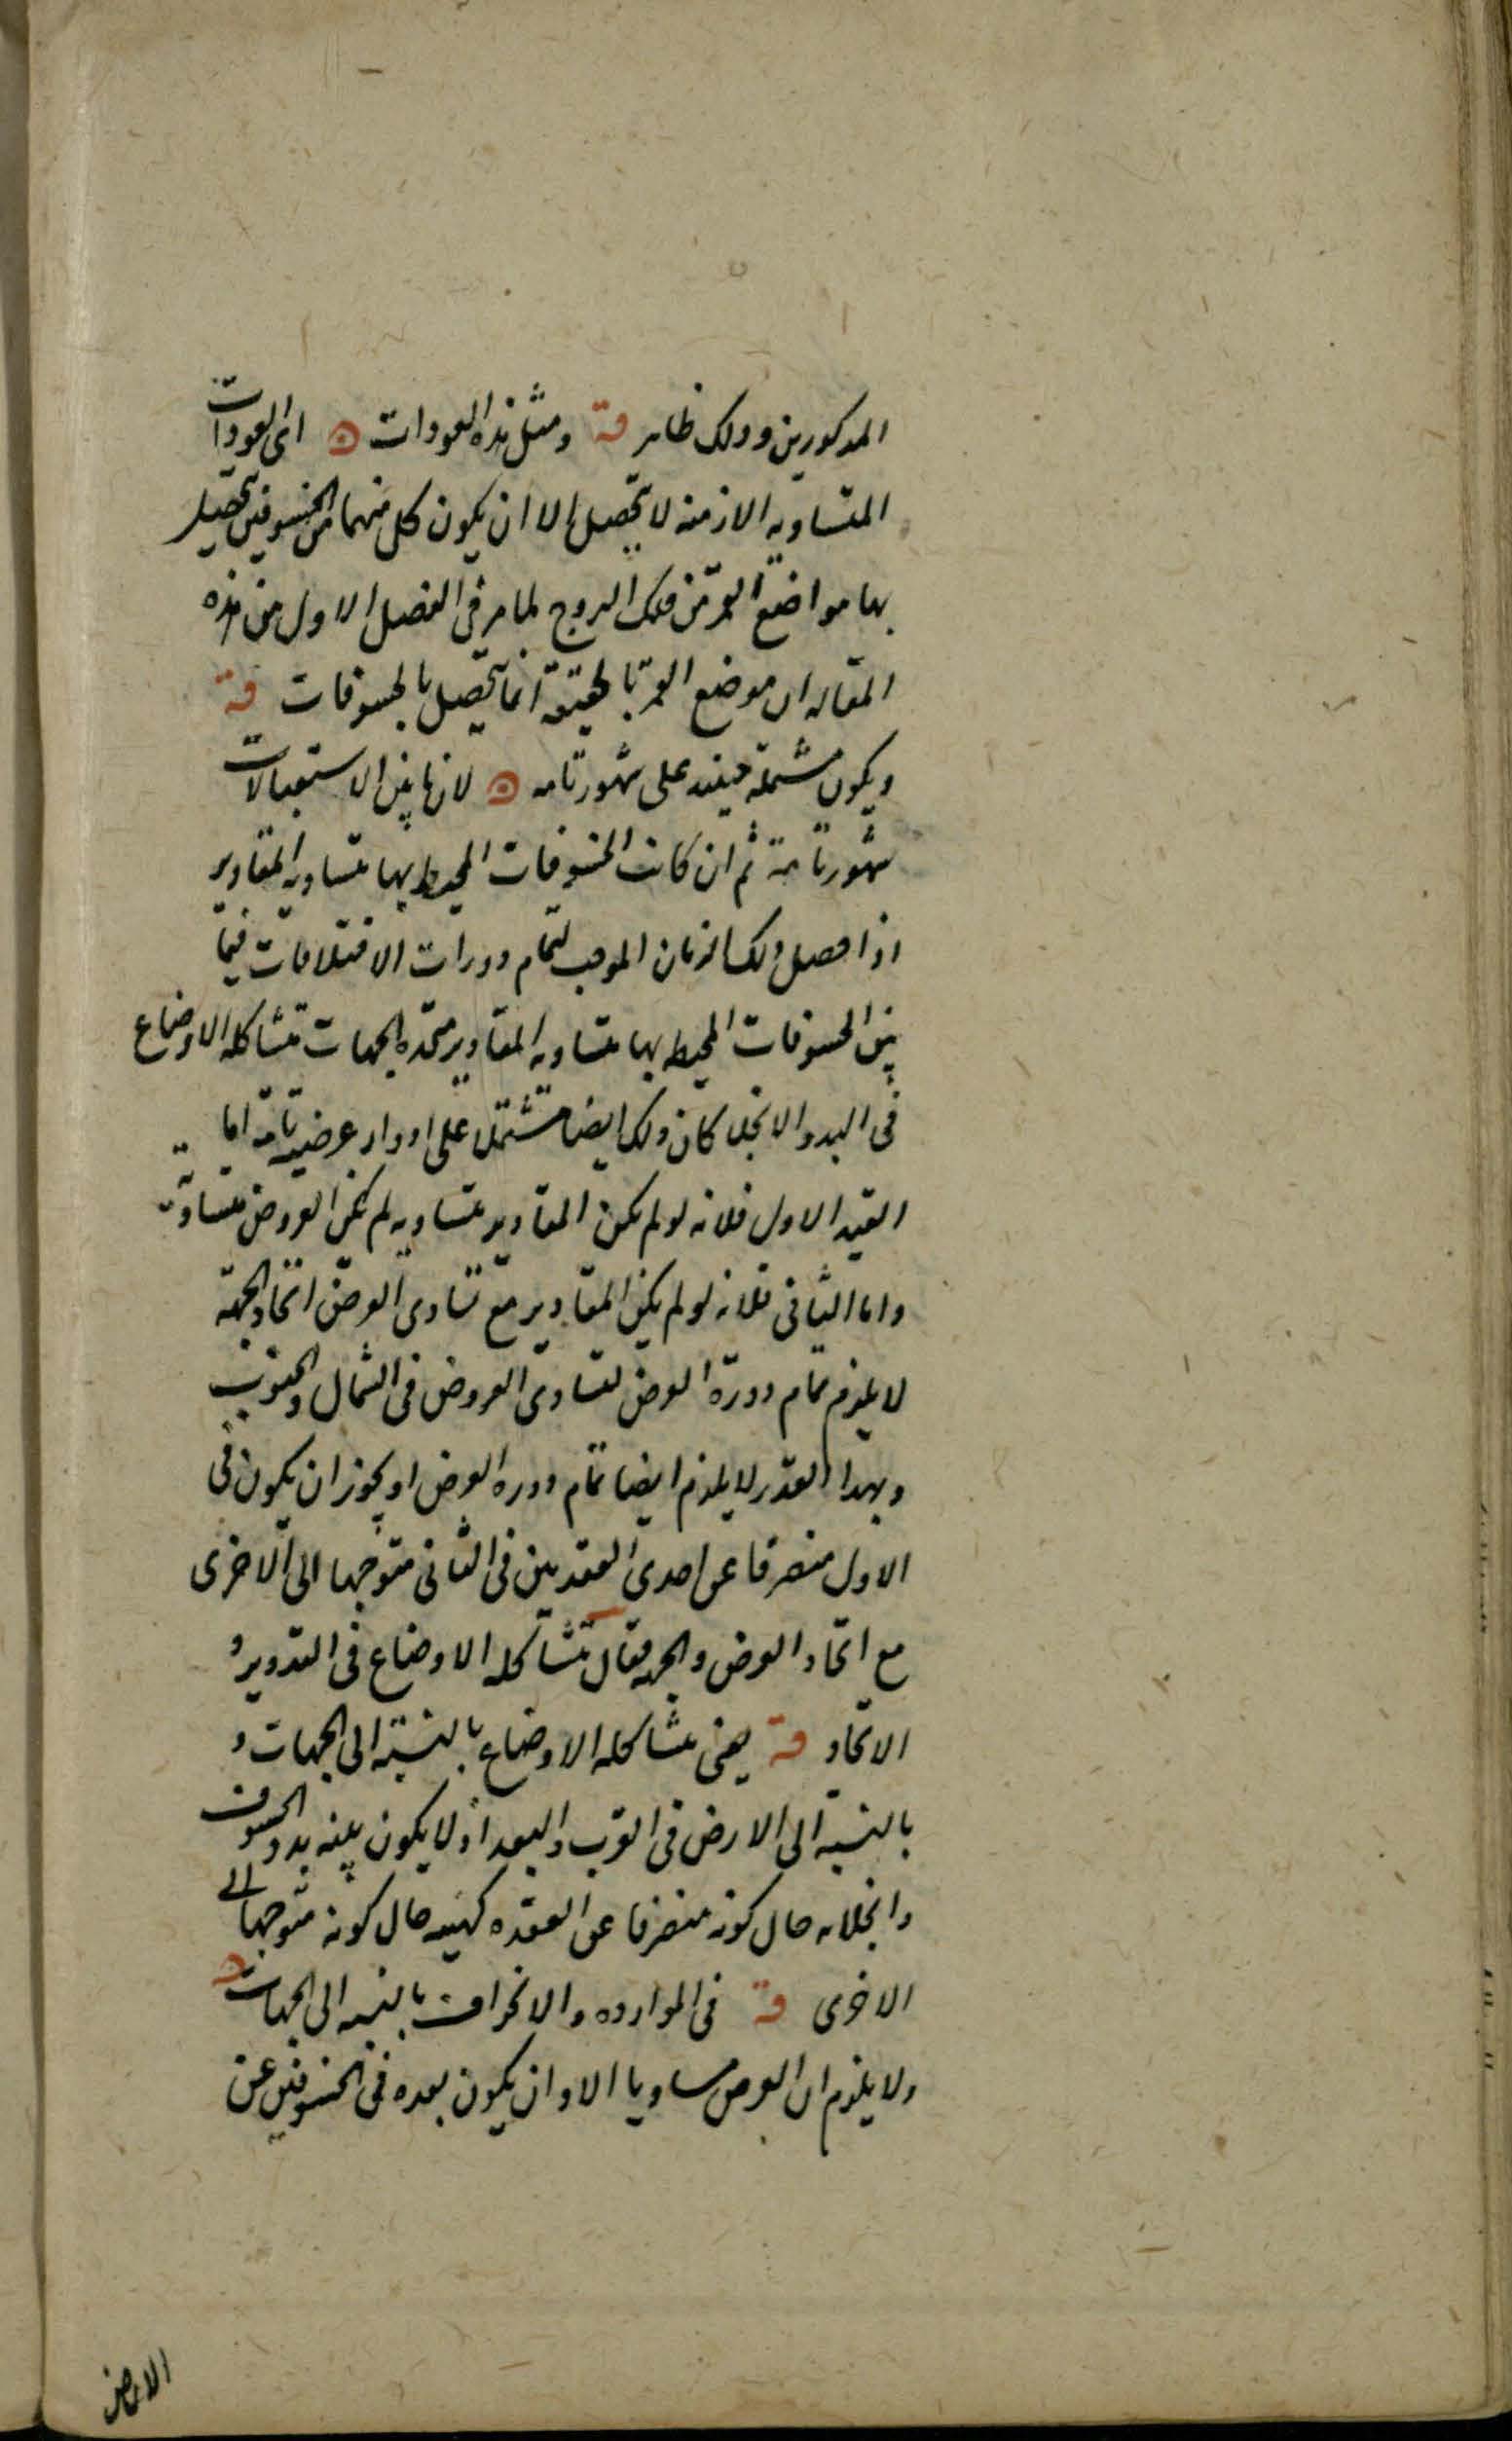 المذكورين وذلك ظاهر قه ومثل هذه العودات ه اى العودات
المتساويه الازمنه لا يحصل الا ان يكون كل منهما من الخسوفين تحصيل
بها مواضع القمر من فلك البروج لما مر فى الفصل الاول من هذه
المقاله ان موضع القمر بالحقيقة انما يحصل بالخسوفات قه
ويكون مشتملة حينئذ على شهور تامه ه لانها بين الاستقبالات
شهور تامة ثم ان كانت الخسوفات المحيط بها متساويه المقادير
اذا حصل ذلك الزمان الموجب لتمام دورات الاختلافات فيما
بين الخسوفات المحيط بها متساويه المقادير متحده الجهات متشاكله الاوضاع
فى البدو الانجلا كان ذلك ايضا مشتملا على ادوار عرضيه تامه اما
القيد الاول فلانه لو لم يكن المقادير متساويه لم يكن العروض متساوية
واما الثانى فلانه لو لم يكن المقادير مع تساوى العرض اتحاد الجهة
لا يلزم تمام دورة العرض لتساوى العروض فى الشمال والجنوب
وبهذا القدر لا يلزم ايضا تمام دوره العرض او يجوز ان يكون فى
الاول منصرفا عن احدى العقدتين فى الثانى متوجها الى الاخرى
مع اتحاد العرض والجهه فقال متشاكله الاوضاع فى التدوير و
الاتحاد قه يعنى متشاكله الاوضاع بالنسبة الى الجهات و
بالنسبه الى الارض فى القرب والبعد اذ لا يكون بينه بدو الخسوف
وانجلائه حال كونه منصرفا عن العقده كهيئه حال كونه متوجها الى
الاخرى قه فى الموارده والانحراف بالنسبه الى الجهات ه
ولا يلزم ان العرض مساويا الا وان يكون بعده فى الخسوفين عن
الارض